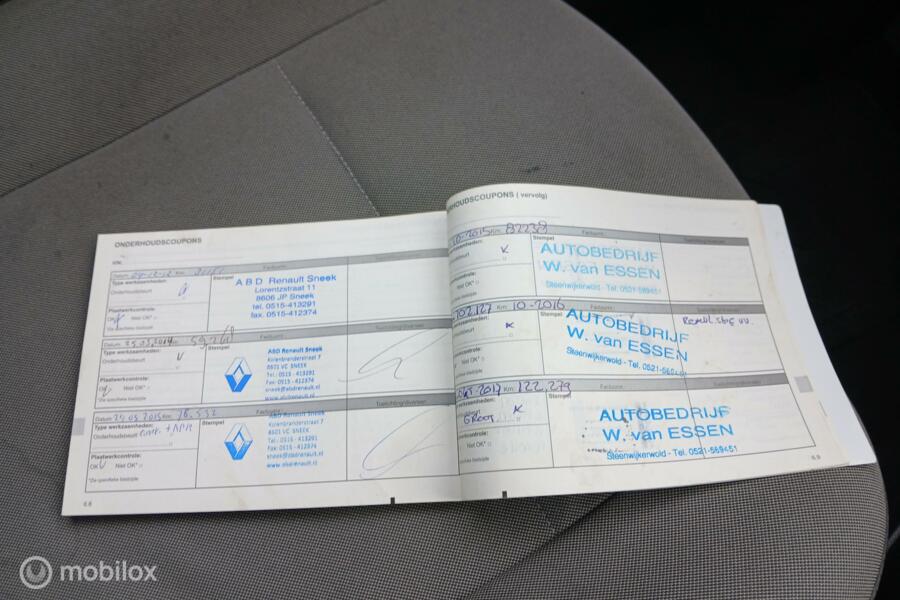 ONDERHOUDSCOUPONS
VIN:
Datum: Km:
Factuurnr.:
Type werkzaamheden:
Onderhoudsbeurt
Stempel
A B D Renault Sneek
Lorentzstraat 11
8606 JP Sneek
tel. 0515-413291
fax. 0515-412374
Plaatwerkcontrole:
OK Niet OK*
*Zie specifieke bladzijde
Datum: 25.03.2014 Km:
Factuurnr.:
Toelichting/diversen
Type werkzaamheden:
Onderhoudsbeurt
Stempel
ABD Renault Sneek
Kolenbranderstraat 7
8601 VC SNEEK
Tel.: 0515 - 413291
Fax: 0515 - 412374
sneek@abdrenault.nl
www.abdrenault.nl
Plaatwerkcontrole:
OK Niet OK*
*Zie specifieke bladzijde
Datum: 25 03 2015 Km: 76.532
Factuurnr.:
Toelichting/diversen
Type werkzaamheden:
Onderhoudsbeurt + APK
Stempel
ABD Renault Sneek
Kolenbranderstraat 7
8601 VC SNEEK
Tel.: 0515 - 413291
Fax: 0515 - 412374
sneek@abdrenault.nl
www.abdrenault.nl
Plaatwerkcontrole:
OK Niet OK*
*Zie specifieke bladzijde
6.8
RHOUDSCOUPONS ( vervolg)
10-2015 Km: 82238
Factuurnr.:
Toelichting/diversen
werkzaamheden:
Stempel
AUTOBEDRIJF
W. van ESSEN
Steenwijkerwold - Tel. 0521-589451
Niet OK*
102.127 10-2016
Factuurnr.:
werkzaamheden:
Stempel
AUTOBEDRIJF
W. van ESSEN
Steenwijkerwold - Tel. 0521-589451
Niet OK*
2017 Km: 122.279
Factuurnr.:
werkzaamheden:
GROOT
Stempel
AUTOBEDRIJF
W. van ESSEN
Steenwijkerwold - Tel. 0521-589451
Niet OK*
6.9
mobilox